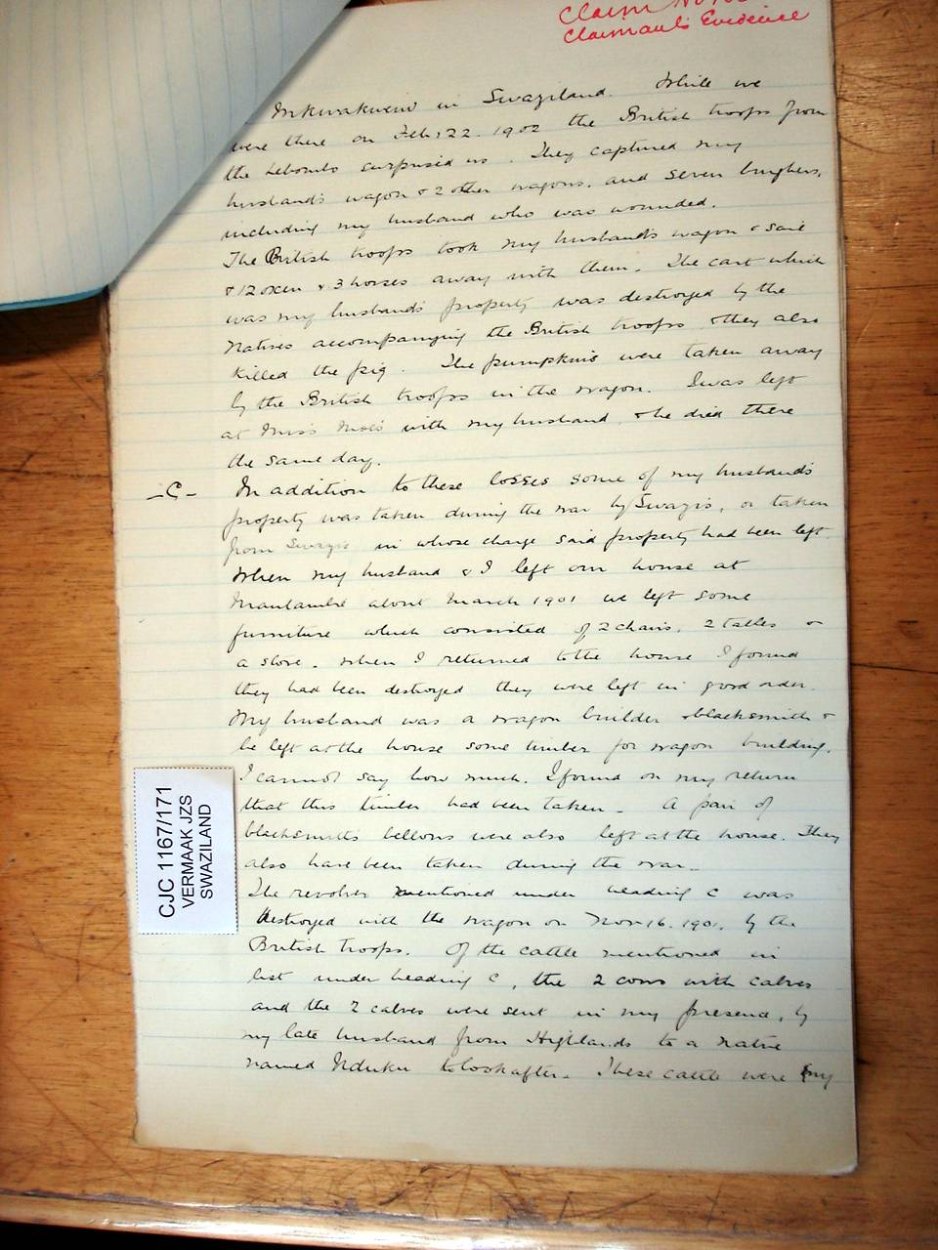 Claim No
Claimant's Evidence
in Swaziland. While we
were there on Feb: 22. 1902 the British troops from
the Lebombo surprised us. They captured my
husband's wagon & 2 other wagons, and seven burghers,
including my husband who was wounded.
The British troops took my husband's wagon & sail
& 12 oxen & 3 horses away with them. The cart which
was my husband's property was destroyed by the
natives accompanying the British troops & they also
killed the pig. The pumpkins were taken away
by the British troops in the wagon. I was left
at with my husband, & he died there
the same day.
-C- In addition to these losses some of my husband's
property was taken during the war by Swazis, or taken
from Swazis in whose charge said property had been left.
When my husband & I left our house at
about March 1901 we left some
furniture which consisted of 2 chairs, 2 tables &
a stove. When I returned to the house I found
they had been destroyed they were left in good order.
My husband was a wagon builder & blacksmith &
he left at the house some timber for wagon building.
I cannot say how much. I found on my return
that this timber had been taken. A pair of
blacksmith's bellows were also left at the house. They
also have been taken during the war.
The revolver mentioned under heading C was
destroyed with the wagon on Nov 16. 1901. by the
British troops. Of the cattle mentioned in
list under heading C, the 2 cows with calves
and the 2 calves were sent in my presence, by
my late husband from Highlands to a native
named Nduku to look after. These cattle were my
CJC 1167/171
VERMAAK JZS
SWAZILAND